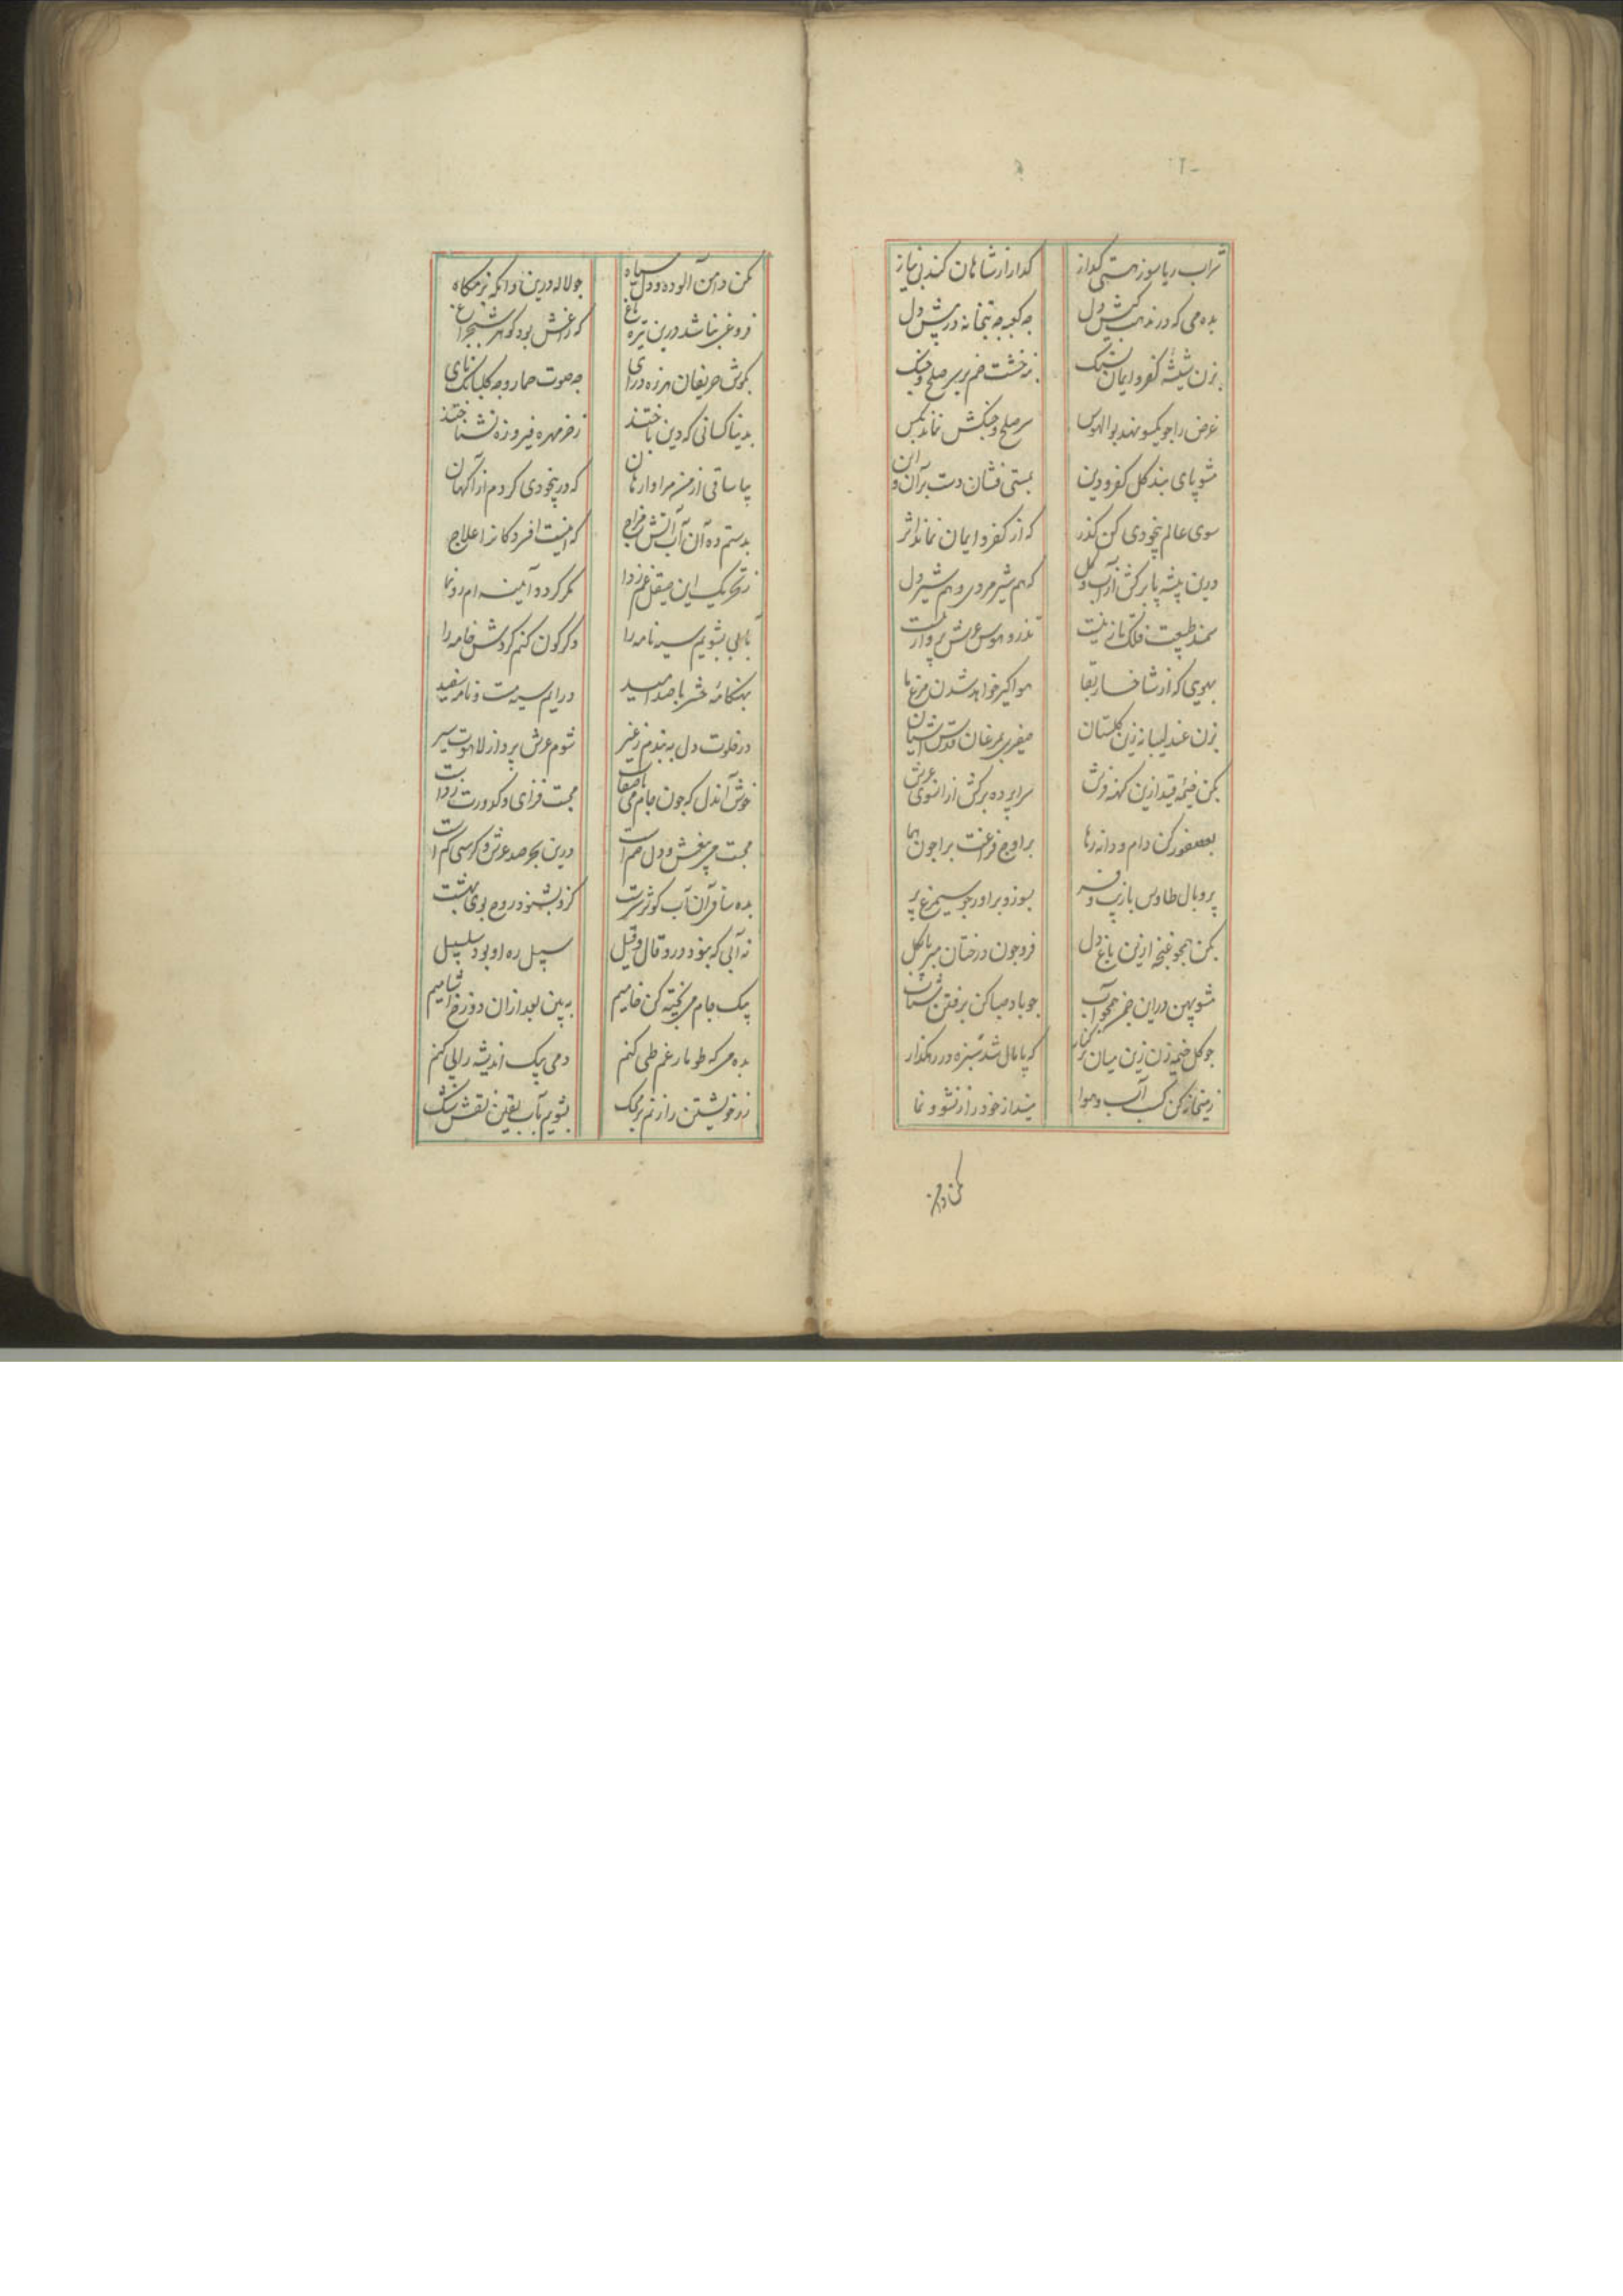 شراب ریاسوز هستی گداز    گدا را ز شاهان کند بی نیاز
بده می که در مذهب کیش دل    چه کعبه چه بتخانه در پیش دل
بزن شیشه کفر و ایمان بسنگ    نه خشت خم بر سر صلح و جنگ
غرض را چو یکسو نهد بوالهوس    سر صلح و جنگش نماند بکس
مشو پای بند گل کفر و دین    بمستی فشان دست بر آن و این
سوی عالم بیخودی کن گذر    که از کفر و ایمان نماند اثر
درین بیشه پا برکش از آب و گل    که هم شیر مردی و هم شیر دل
سمند طبیعت فلک تاز نیست    تذرو هوس عرش پرواز نیست
بهوی که از شاخسار بقا    هواگیر خواهد شدن مرغ ما
بزن عندلیبانه زین گلستان    صفیری بمرغان قدس آشیان
بکن خیمه قید ازین کهنه فرش    سراپرده برکش از آنسوی عرش
بعصفور کن دام و دانه رها    بر اوج فراغت برا چون هما
پر و بال طاوس با زیب و فر    بسوز و برآور چو سیمرغ پر
بکن همچو غنچه ازین باغ دل    فرو چون درختان مبر پا بگل
مشو پهن در این چمن همچو آب    چو باد صبا کن برفتن شتاب
چو گل خیمه زن زین میان بر کنار    که پامال شد سبزه در رهگذار
ز میخانه کن کسب آب و هوا    مینداز خود را ز نشو و نما
مکن دامن
مکن دامن آلوده و دل سیاه    چو لاله درین وانگه بزمگاه
فروغی نباشد درین تیره باغ    که داغش بود گوهر شبچراغ
بگوش حریفان هرزه درای    چه صوت حمار و چه گلبانگ نای
بدنیا کسانی که دین باختند    ز خرمهره فیروزه نشناختند
بیا ساقی از من مرا وارهان    که در بیخودی گردم از آگهان
بدستم ده آن آب آتش مزاج    که اینست افسردگانرا علاج
ز تحریک این صیقل غم زدا    مگر گردد آئینه ام رونما
بآبی بشویم سیه نامه را    دگرگون کنم گردش خامه را
بهنگامه حشر با صد امید    درایم سیه مست و نامه سفید
در خلوت دل ببندم ز غیر    شوم عرش پرواز لاهوت سیر
خوش آندل که چون جام می باصفاست    محبت فزای و کدورت زداست
محبت می بیغش و دل خم است    درین بحر صد عرش و کرسی گم است
بده ساقی آن آب کوثر سرشت    کزو بشنود روح بوی بهشت
نه آبی که بنود درو قال و قیل    سبیل ره او بود سلسبیل
بیک جام می پخته کن خامیم    به بین بعد ازان دوزخ آشامیم
بده می که طومار غم طی کنم    دمی پیک اندیشه را پی کنم
زر خویشتن را زنم بر محک    بشویم بآب یقین نقش شک